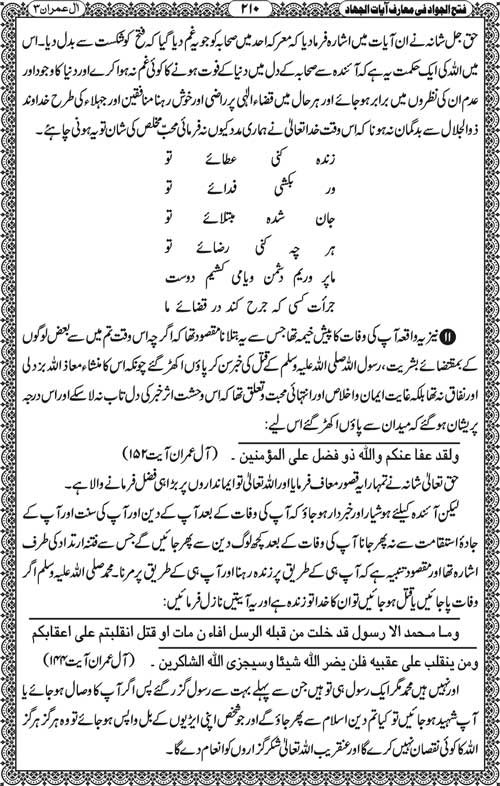 فتح الجواد فی معارف آیات الجھاد
۲۱۰
آل عمران ۳
حق جل شانہ نے ان آیات میں اشارہ فرما دیا کہ معرکہ احد میں صحابہ کو جو یہ غم دیا گیا کہ فتح کو شکست سے بدل دیا۔ اس
میں اللہ کی ایک حکمت یہ ہے کہ آئندہ سے صحابہ کے دل میں دنیا کے فوت ہونے کا کوئی غم نہ ہوا کرے اور دنیا کا وجود اور
عدم ان کی نظروں میں برابر ہو جائے اور ہر حال میں قضاء الٰہی پر راضی اور خوش رہنا منافقین اور جہلاء کی طرح خداوند
ذوالجلال سے بدگمان نہ ہونا کہ اس وقت خدا تعالیٰ نے ہماری مدد کیوں نہ فرمائی محبّ مخلص کی شان تو یہ ہونی چاہئے۔
زندہ کنی عطائے تو
ور بکشی فدائے تو
جان شدہ مبتلائے تو
ہر چہ کنی رضائے تو
ماپر وریم دشمن ویامی کشیم دوست
جرأت کسی کہ جرح کند در قضائے ما
۱۱ نیز یہ واقعہ آپ کی وفات کا پیش خیمہ تھا جس سے یہ بتلانا مقصود تھا کہ اگرچہ اس وقت تم میں سے بعض لوگوں
کے بمقتضائے بشریت، رسول اللہ صلی اللہ علیہ وسلم کے قتل کی خبر سن کر پاؤں اکھڑ گئے چونکہ اس کا منشاء معاذ اللہ بزدلی
اور نفاق نہ تھا بلکہ غایت ایمان واخلاص اور انتہائی محبت وتعلق تھا کہ اس وحشت اثر خبر کی دل تاب نہ لا سکے اور اس درجہ
پریشان ہو گئے کہ میدان سے پاؤں اکھڑ گئے اس لیے:
ولقد عفا عنکم واللہ ذو فضل علی المؤمنین ۔ (آل عمران آیت ۱۵۲)
حق تعالیٰ شانہ نے تمہارا یہ قصور معاف فرمایا اور اللہ تعالیٰ تو ایمانداروں پر بڑا ہی فضل فرمانے والا ہے۔
لیکن آئندہ کیلئے ہوشیار اور خبردار ہو جاؤ کہ آپ کی وفات کے بعد آپ کے دین اور آپ کی سنت اور آپ کے
جادۂ استقامت سے نہ پھر جانا آپ کی وفات کے بعد کچھ لوگ دین سے پھر جائیں گے جس سے فتنہ ارتداد کی طرف
اشارہ تھا اور مقصود تنبیہ ہے کہ آپ ہی کے طریق پر زندہ رہنا اور آپ ہی کے طریق پر مرنا۔ محمد صلی اللہ علیہ وسلم اگر
وفات پا جائیں یا قتل ہو جائیں تو ان کا خدا تو زندہ ہے اور یہ آیتیں نازل فرمائیں:
وما محمد الا رسول قد خلت من قبلہ الرسل افاءن مات او قتل انقلبتم علی اعقابکم
ومن ینقلب علی عقبیہ فلن یضر اللہ شیئا وسیجزی اللہ الشاکرین ۔ (آل عمران آیت ۱۴۴)
اور نہیں ہیں محمد مگر ایک رسول ہی تو ہیں جن سے پہلے بہت سے رسول گزر گئے پس اگر آپ کا وصال ہو جائے یا
آپ شہید ہو جائیں تو کیا تم دین اسلام سے پھر جاؤ گے اور جو شخص اپنی ایڑیوں کے بل واپس ہو جائے تو وہ ہرگز ہرگز
اللہ کا کوئی نقصان نہیں کرے گا اور عنقریب اللہ تعالیٰ شکر گزاروں کو انعام دے گا۔